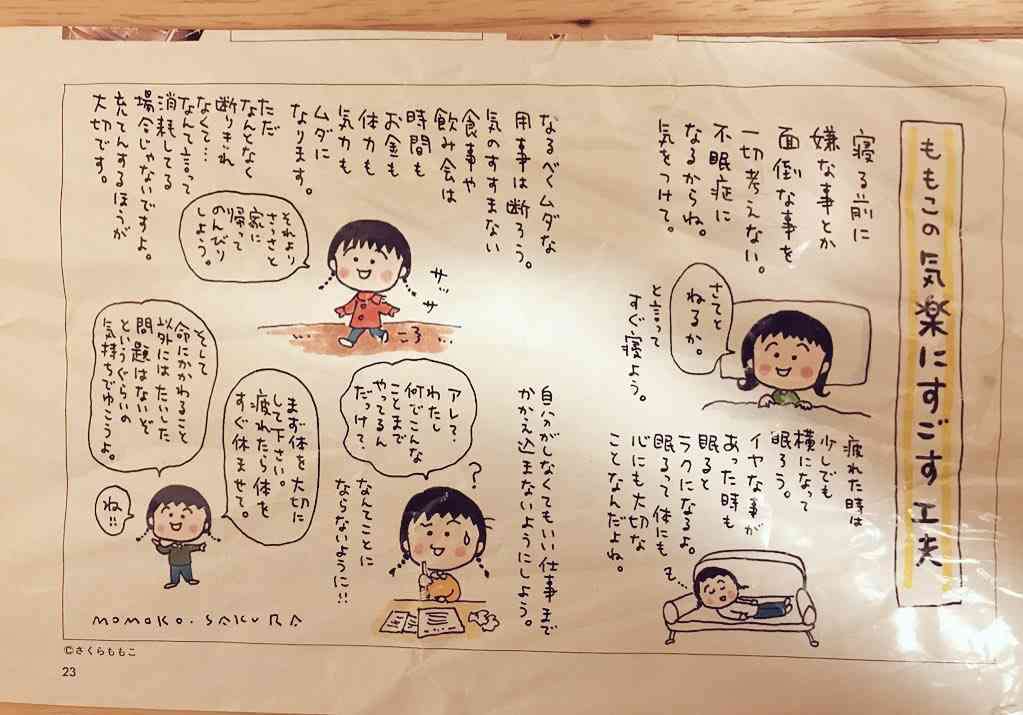 ももこの気楽にすごす工夫
寝る前に
嫌な事とか
面倒な事を
一切考えない。
不眠症に
なるからね。
気をつけて。
さてと
ねるか。
と言って
すぐ寝よう。
疲れた時は
少しでも
横になって
眠ろう。
イヤな事が
あった時も
眠ると
ラクになるよ。
眠るって体にも
心にも大切な
ことなんだよね。
なるべくムダな
用事は断ろう。
気のすすまない
食事や
飲み会は
時間も
お金も
体力も
気力も
ムダに
なります。
ただ
なんとなく
断りきれ
なくて…
なんて言って
消耗してる
場合じゃないですよ。
充てんするほうが
大切です。
それより
さっさと
家に
帰って
のんびり
しよう。
サッサ
ころ
自分がしなくてもいい仕事まで
かかえ込まないようにしよう。
アレ?
わたし
何でこんな
ことまで
やってるん
だっけ?
?
なんてことに
ならないように!!
まず体を大切に
して下さい。
疲れたら体を
すぐ休ませて。
そして
命にかかわること
以外にはたいした
問題はないぞ
というぐらいの
気持ちでゆこうよ。
ね!!
MOMOKO.SAKURA
©さくらももこ
23